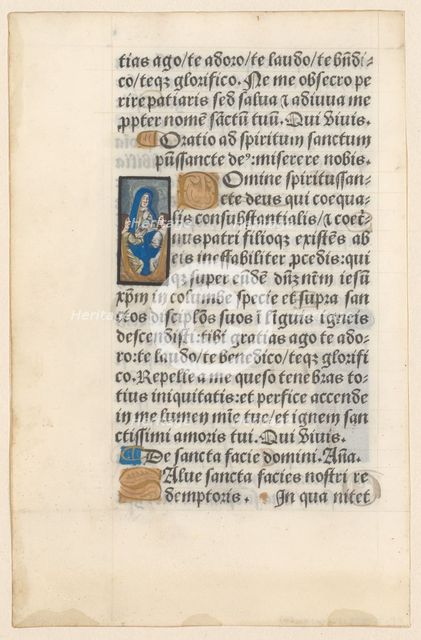 tias ago/te adoro/te laudo/te bn̄di⸗
co/teqȝ glorifico. Ne me obsecro pe
rire patiaris sed salua ⁊ adiuua me
ꝓpter nomē sanctū tuū. Qui viuis.
Oratio ad spiritum sanctum
pūssancte de⁹: miserere nobis.
Domine spiritussan⸗
cte deus qui coequa⸗
lis consubstantialis/⁊ coet̄⸗
nus patri filioqȝ existēs ab
eis ineffabiliter ꝓcedis: qui
qȝ super eūdē dn̄ȝ nr̄m iesū
xp̄m in columbe specie et supra san
ctos discipl̄os suos ī līguis igneis
descendisti: tibi gratias ago te ado⸗
ro: te laudo/te benedico/teqȝ glorifi
co. Repelle a me queso tenebras to⸗
tius iniquitatis: et perfice accende
in me lumen mīe tue/et ignem san
ctissimi amoris tui. Qui viuis.
De sancta facie domini. Añа.
Salue sancta facies nostri re
demptoris. In qua nitet